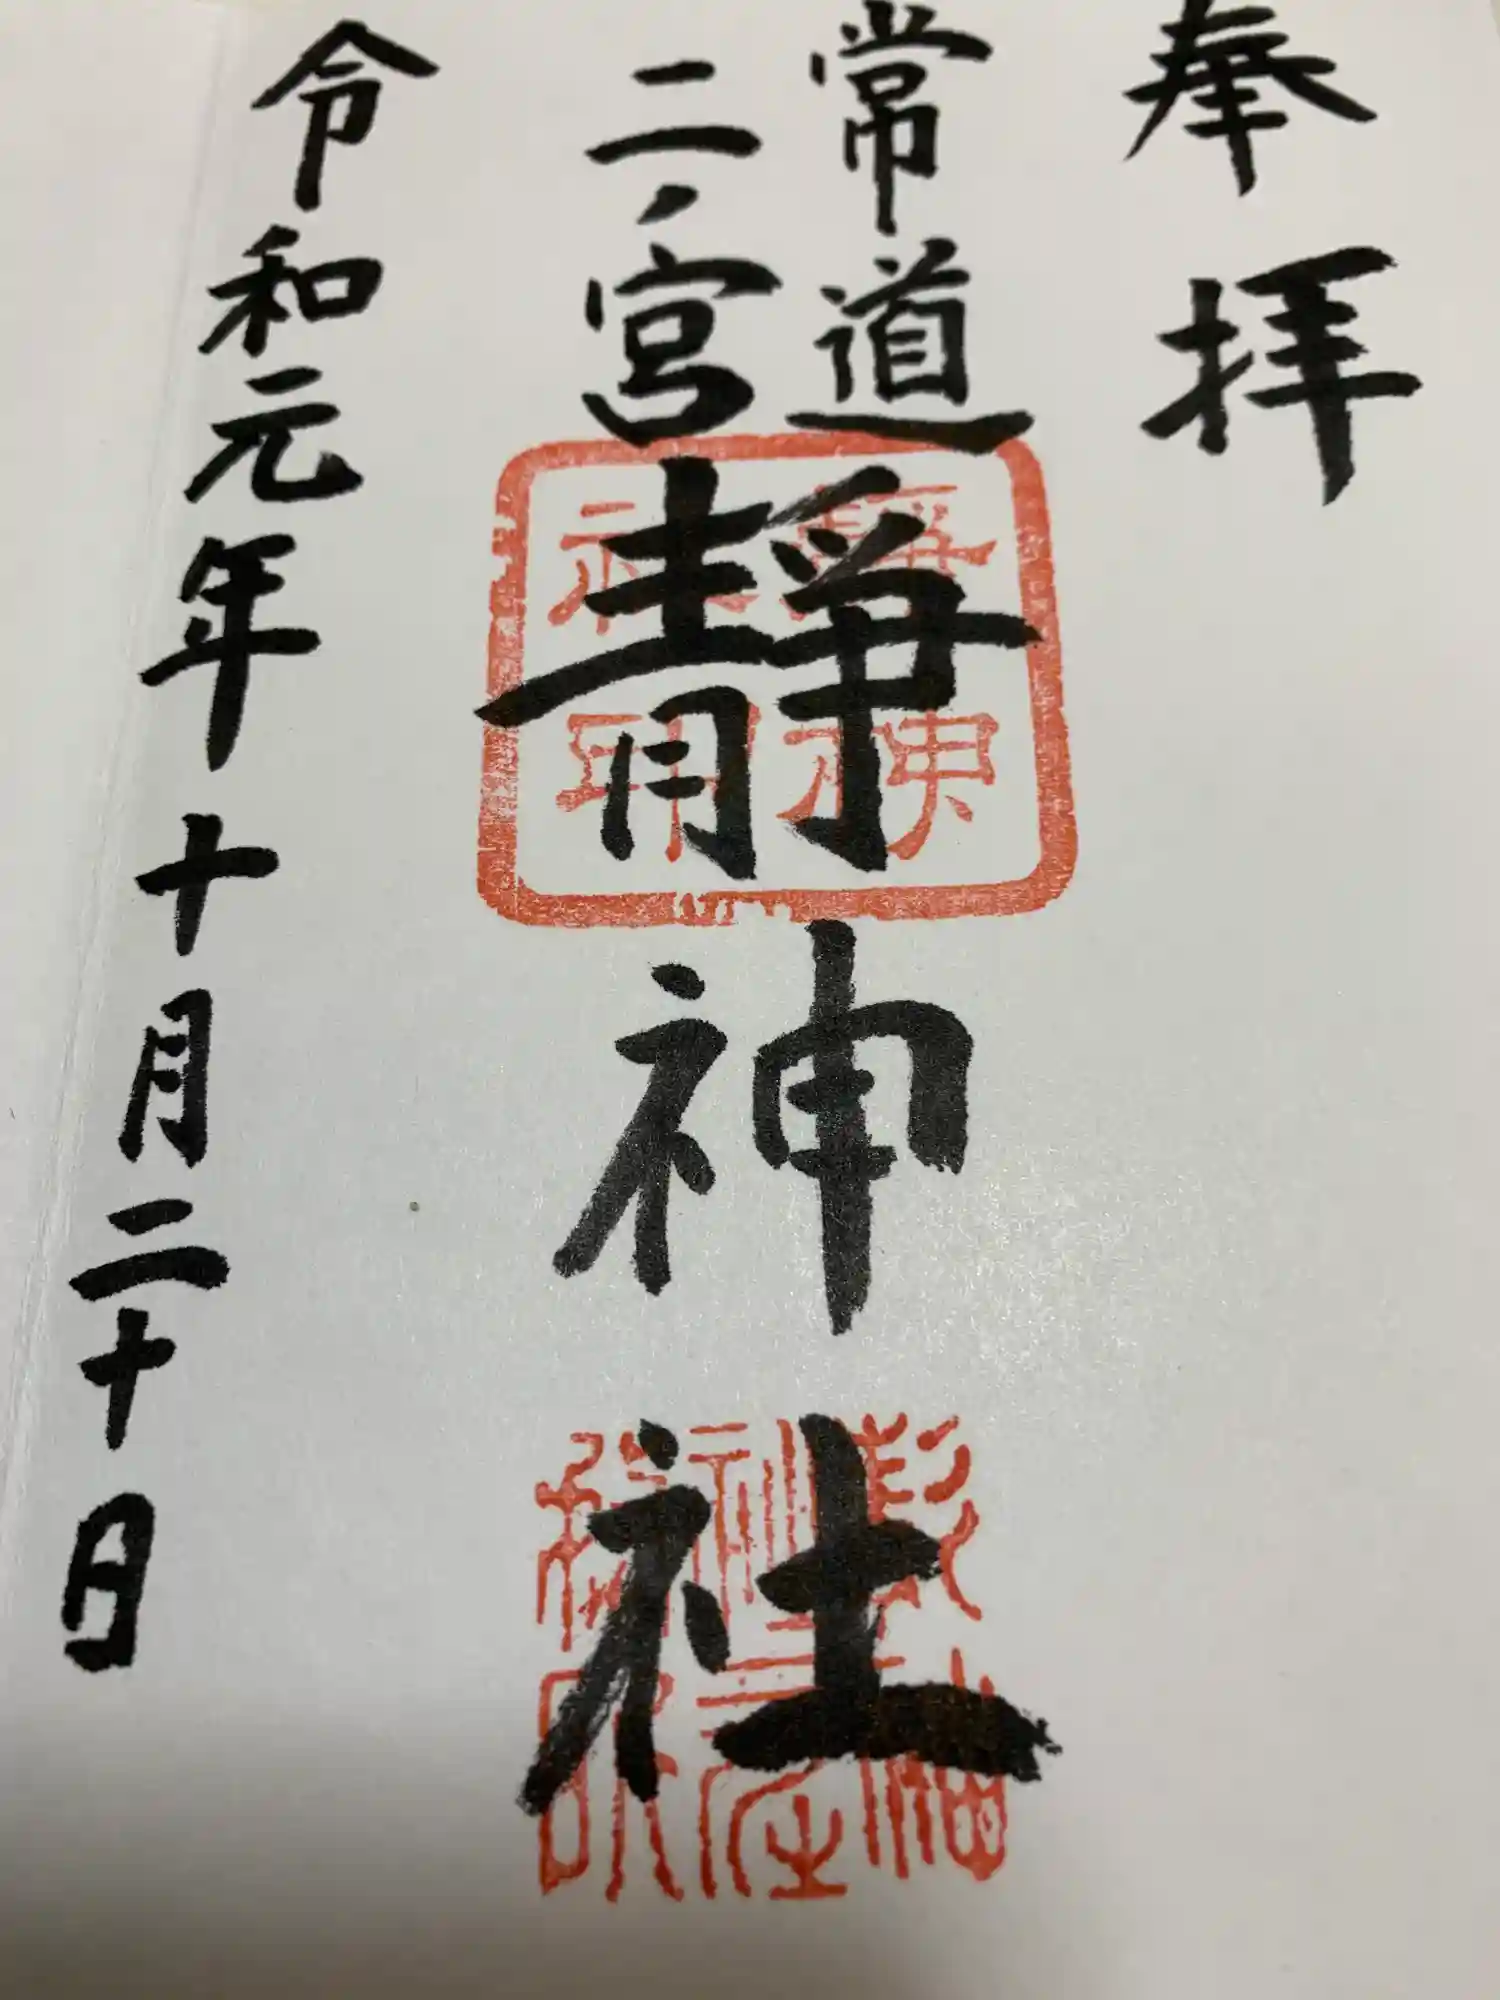 奉拝
常道
二ノ宮
靜神社
令和元年十月二十日
靜神
社印